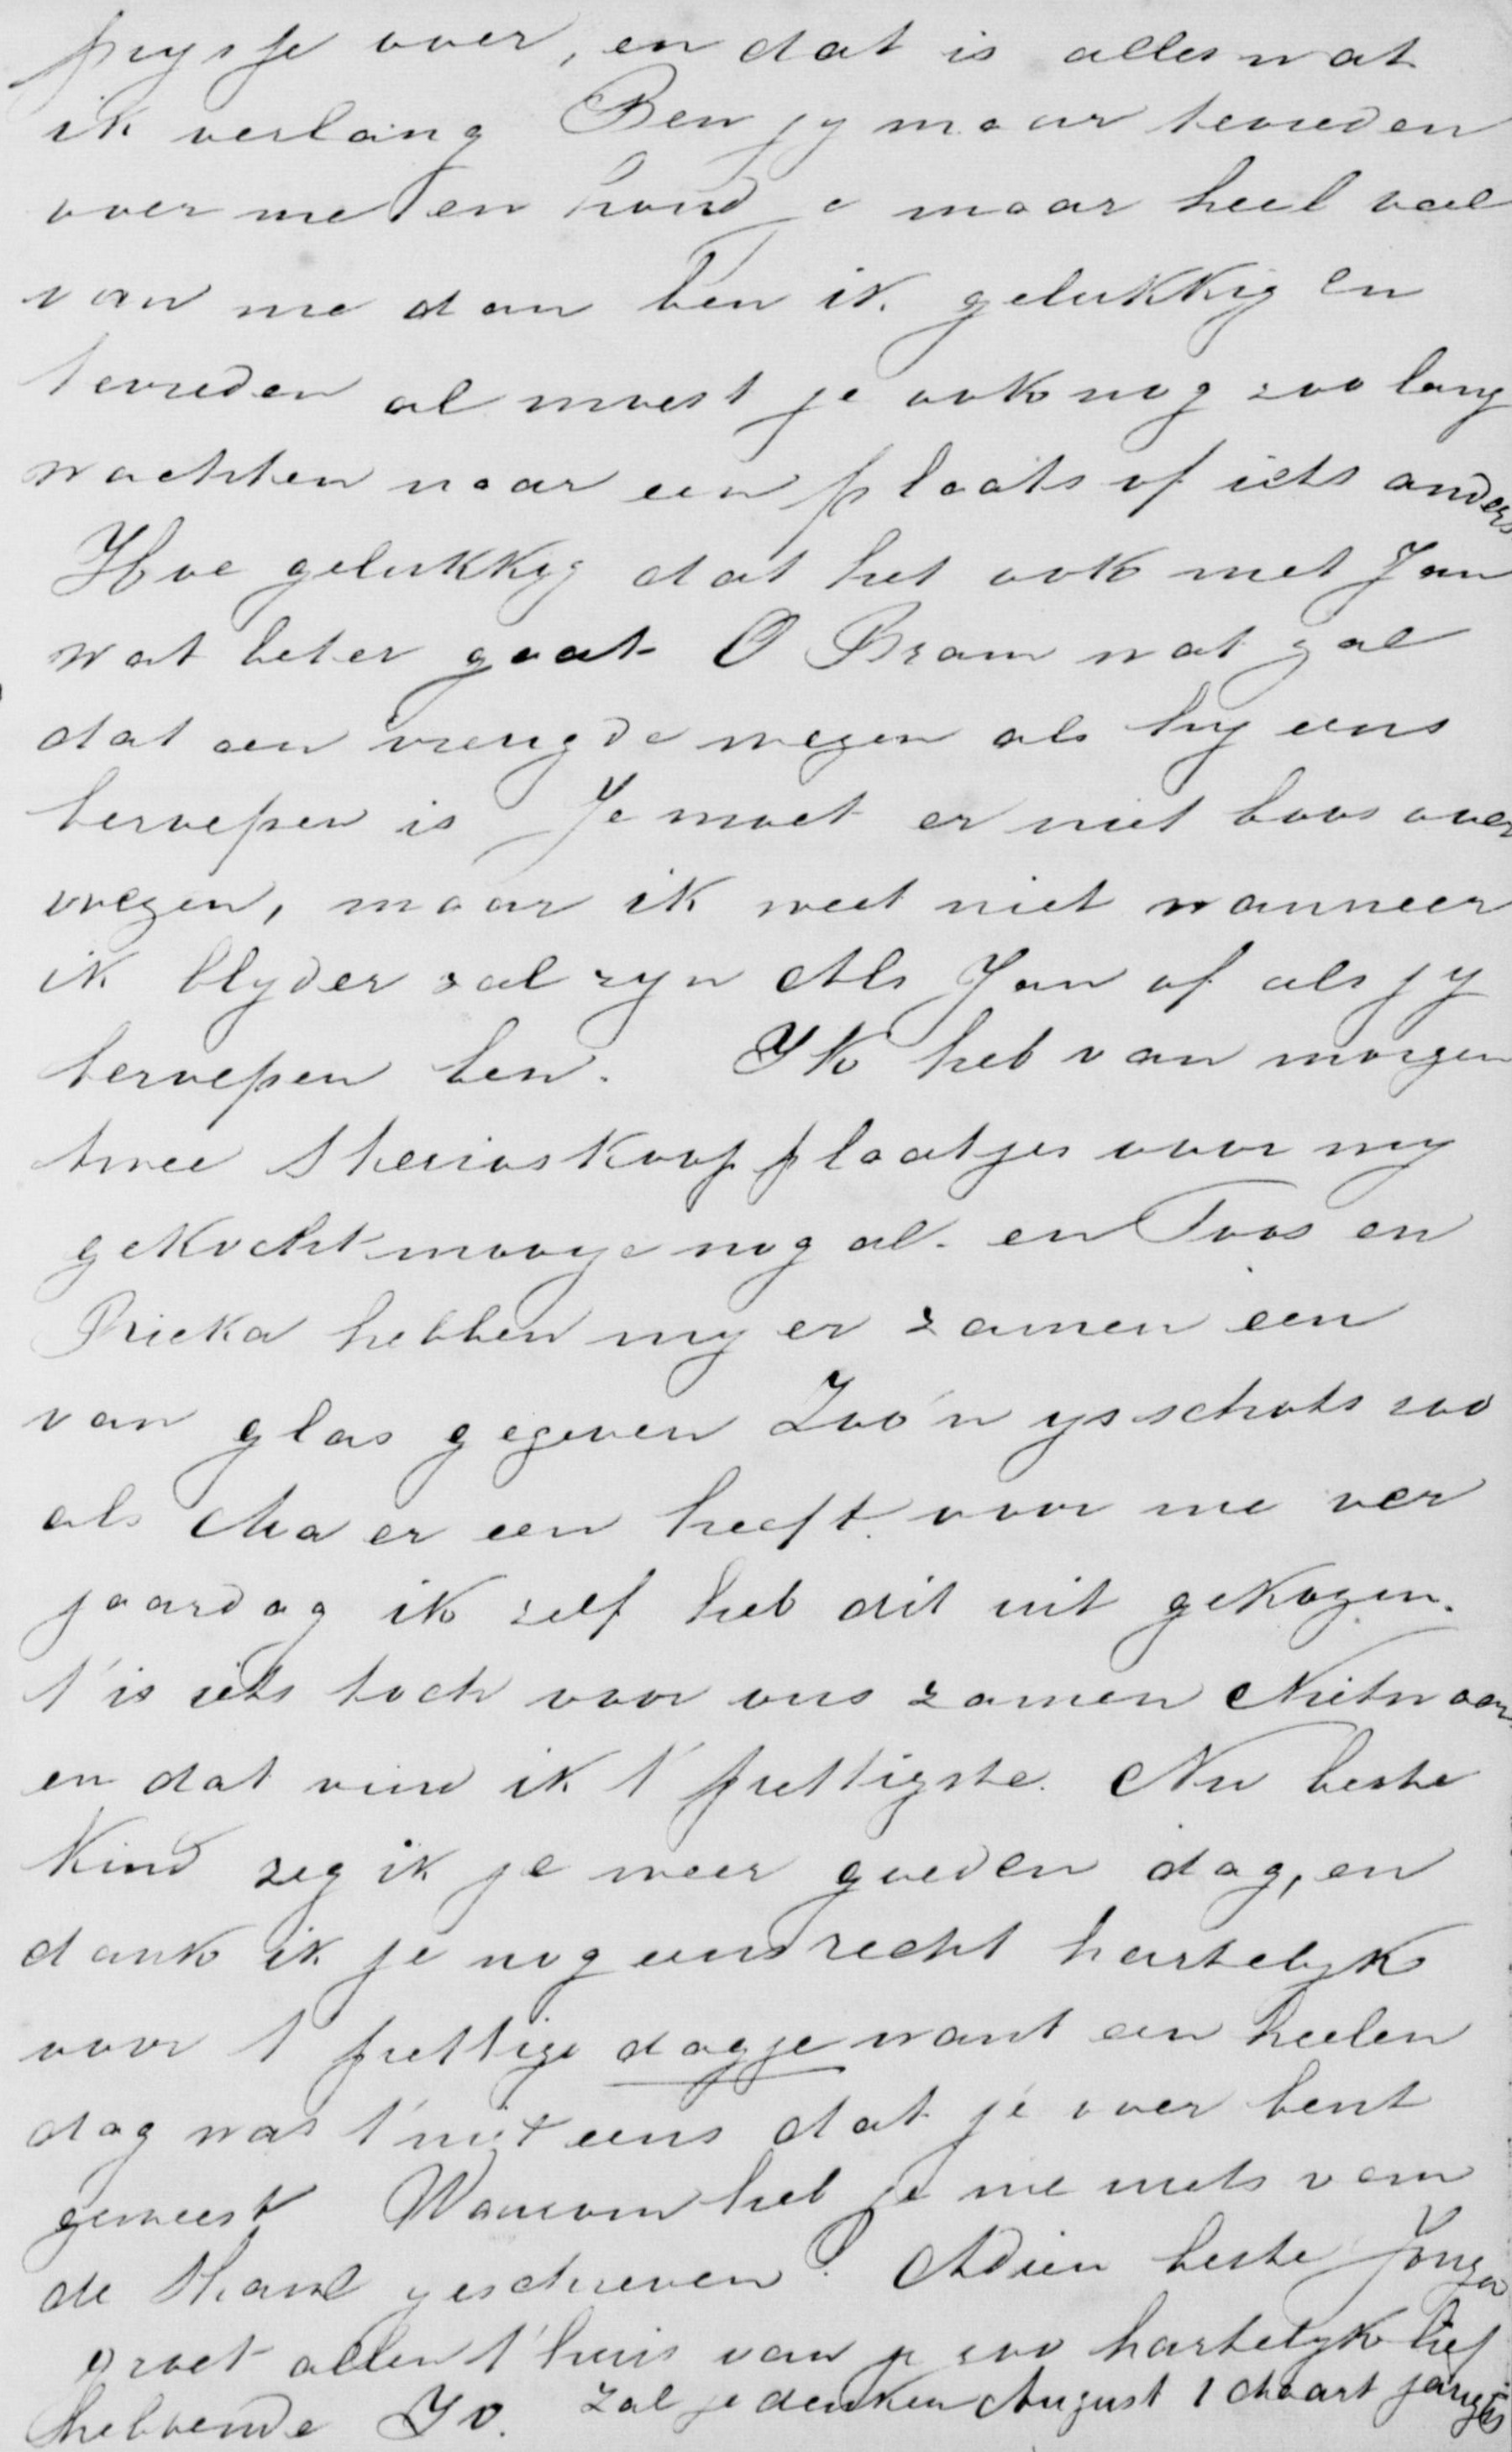 prysje over, en dat is alles wat
ik verlang Ben jy maar tevreden
over me en houd e maar heel veel
van me dan ben ik gelukkig en
tevreden al moest je ook nog zoo lang
wachten naar een plaats of iets anders
Hoe gelukkyg dat het ook met Jan
wat beter gaat O Bram wat zal
dat een vreugde wezen als hy eens
beroepen is Je moet er niet boos over
wezen, maar ik weet niet wanneer
ik blyder zal zyn Als Jan of als jy
beroepen ben. Ik heb van morgen
twee sterioskoop plaatjes voor my
gekocht mooye nog al. en Toos en
Rieka hebben my er zamen een
van glas gegeven Zoo'n ysschots zoo
als Ma er een heeft voor me ver
jaardag ik zelf heb dit uit gekozen.
t'is iets toch voor ons zamen Nietwaar
en dat vind ik t' prettigste. Nu beste
Kind zeg ik je weer goeden dag, en
dank ik je nog eens recht hartelyk
voor t prettige dagje want een heelen
dag was t'niet eens dat je over bent
geweest Waarom heb je me niets van
de geschreven? Adieu beste Jonge
groet allen t'huis van je zoo hartelyk lief
hebbende Jo. Zal je denken August 1 Maart jarig is